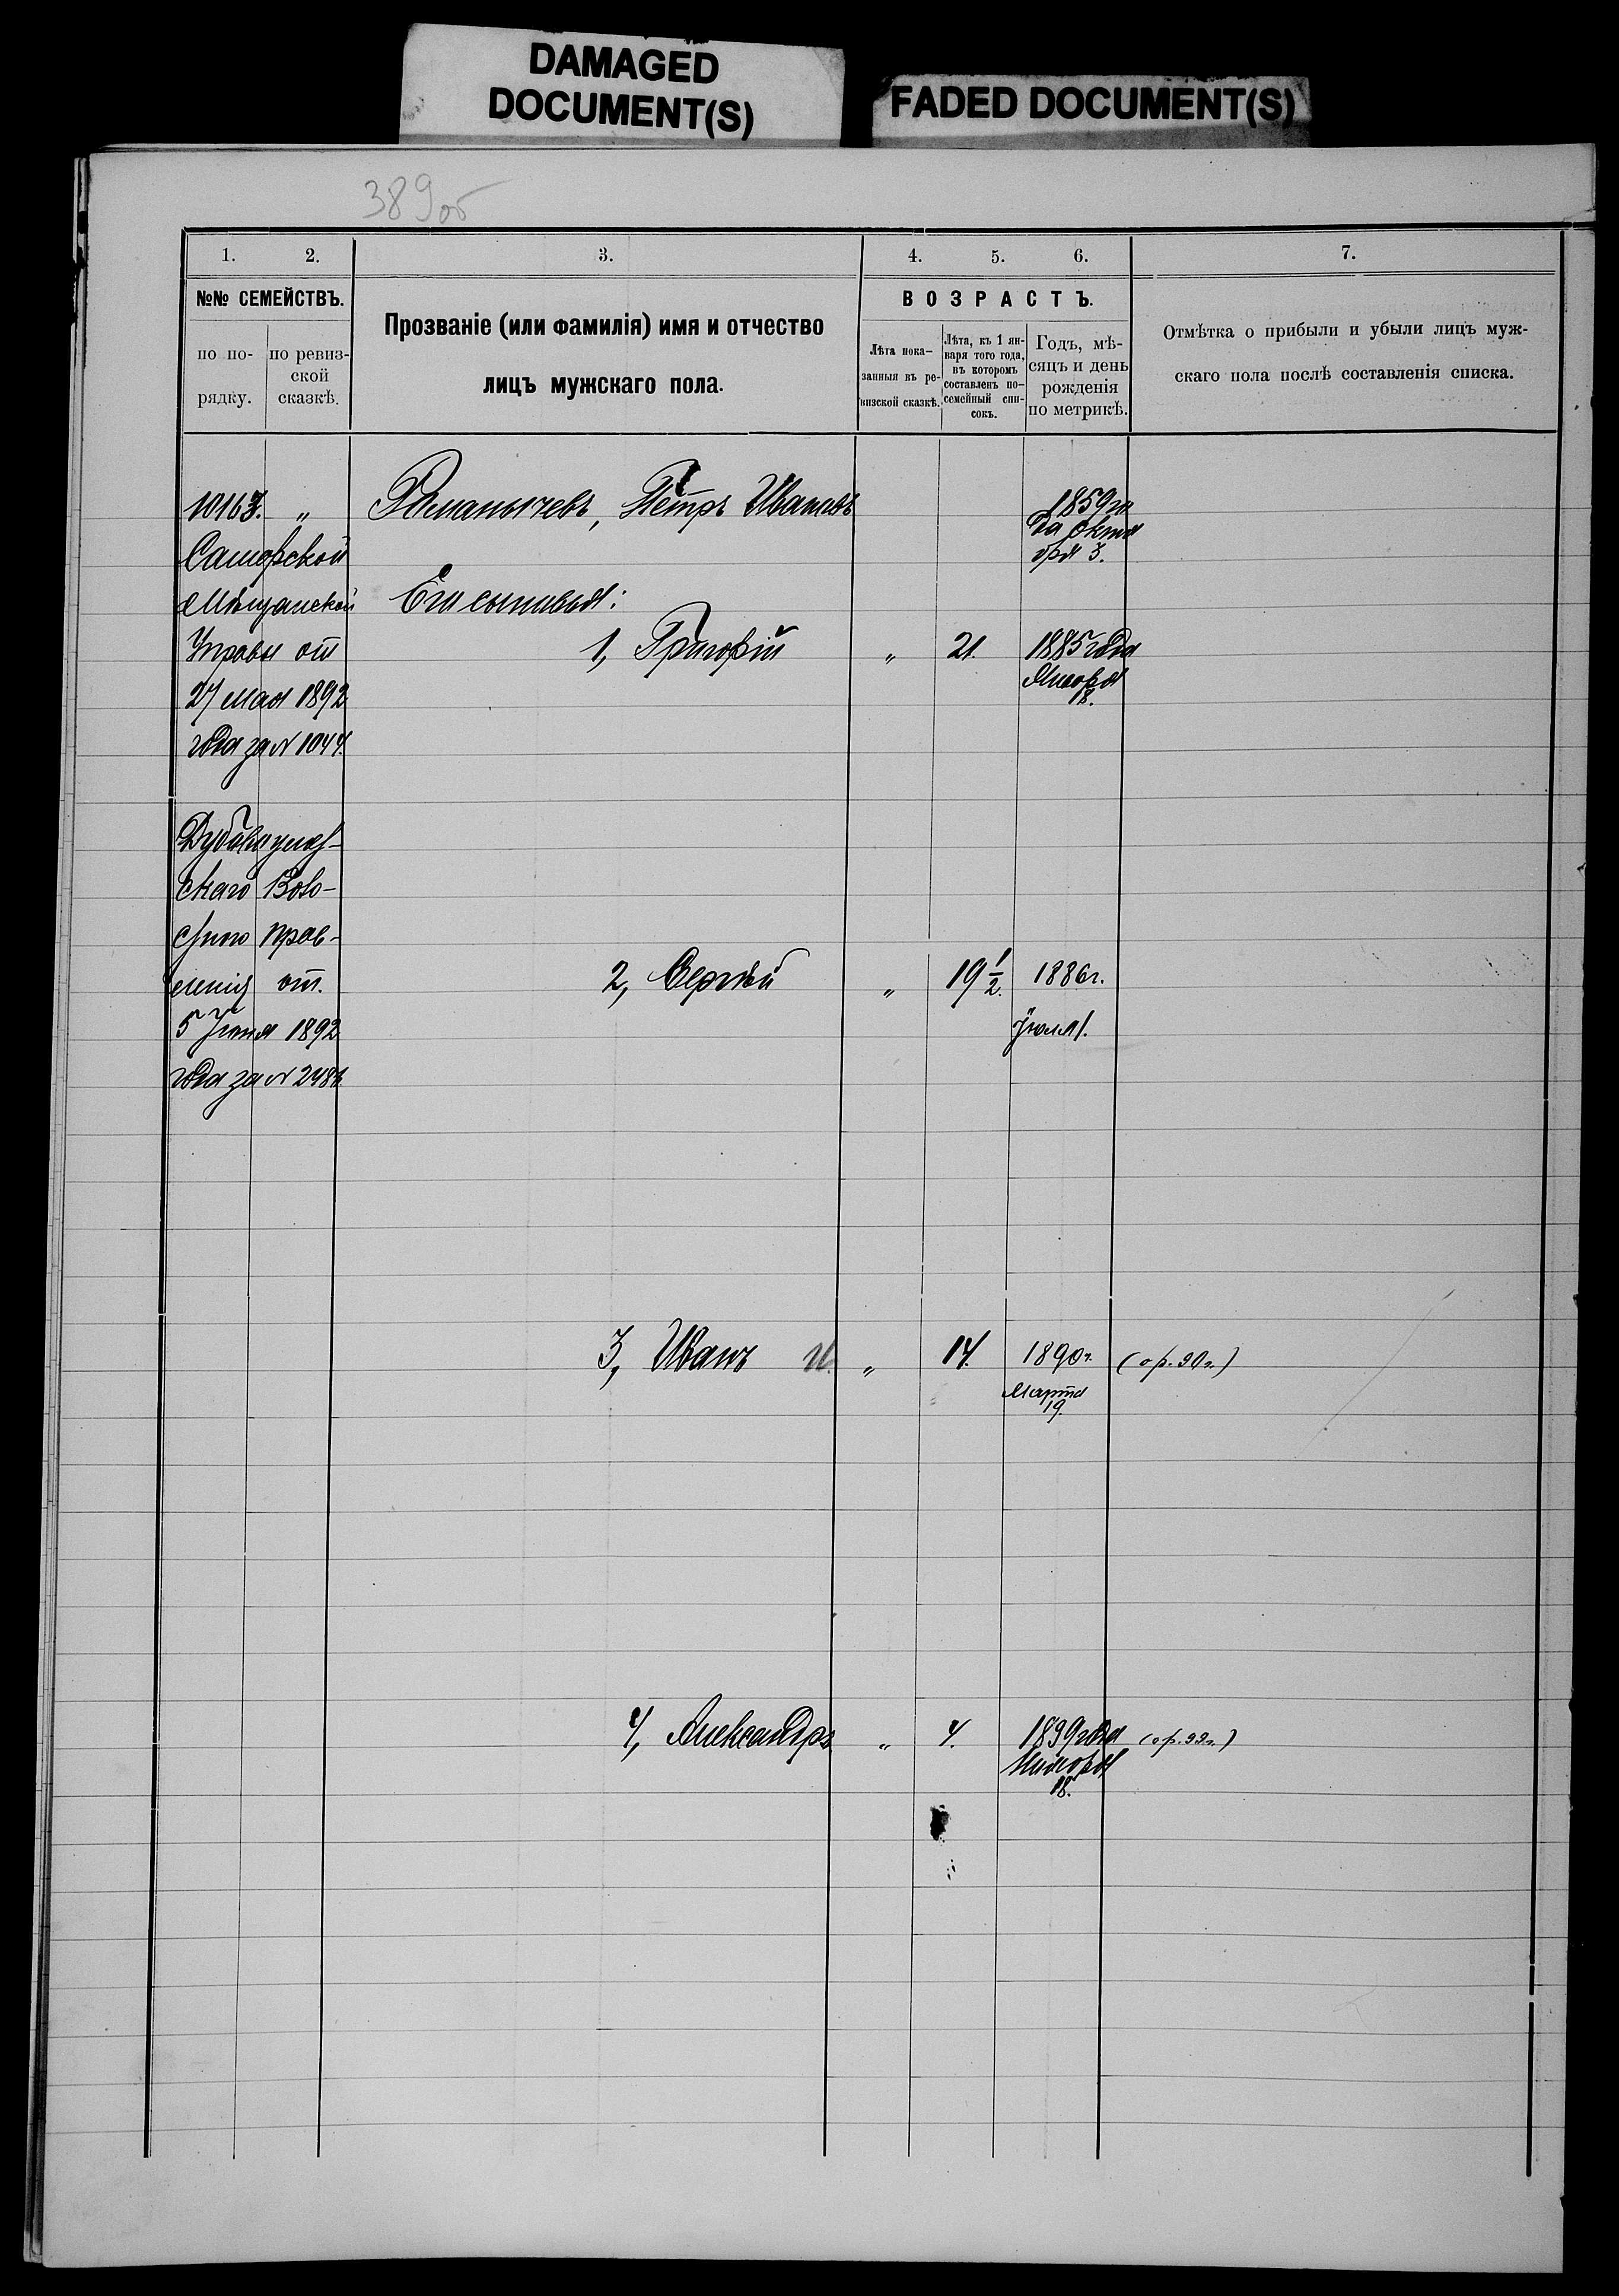 DAMAGED
DOCUMENT(S)
FADED DOCUMENT(S)
389об
1. 2. 3. 4. 5. 6. 7.
№№ СЕМЕЙСТВЪ.
по по-
рядку.
по ревиз-
ской
сказкѣ.
Прозваніе (или фамилія) имя и отчество
лицъ мужскаго пола.
ВОЗРАСТЪ.
Лѣта пока-
занныя въ ре-
визской сказкѣ.
Лѣта, къ 1 ян-
варя того года,
въ которомъ
составленъ по-
семейный спи-
сокъ.
Годъ, мѣ-
сяцъ и день
рожденія
по метрикѣ.
Отмѣтка о прибыли и убыли лицъ муж-
скаго пола послѣ составленія списка.
10163. „ Романычевъ, Петръ Ивановъ 1859 го
да октя
бря 3.
Самарской
Мѣщанской
Управы от
27 мая 1892
года за N 1044.
Его сыновья:
1, Григорій „ 21. 1885 года
Января
18.
ского Воло-
стного прав-
ленія от.
5 Іюня 1892
года за N
2, Сергѣй „ 19 1/2. 1886 г.
Іюля 1.
3, Иванъ И. „ 14. 1890 г. (ор. 90 г.)
Марта
19.
4, Александръ „ 4. 1899 года (ор. 99 г.)
Января
18.